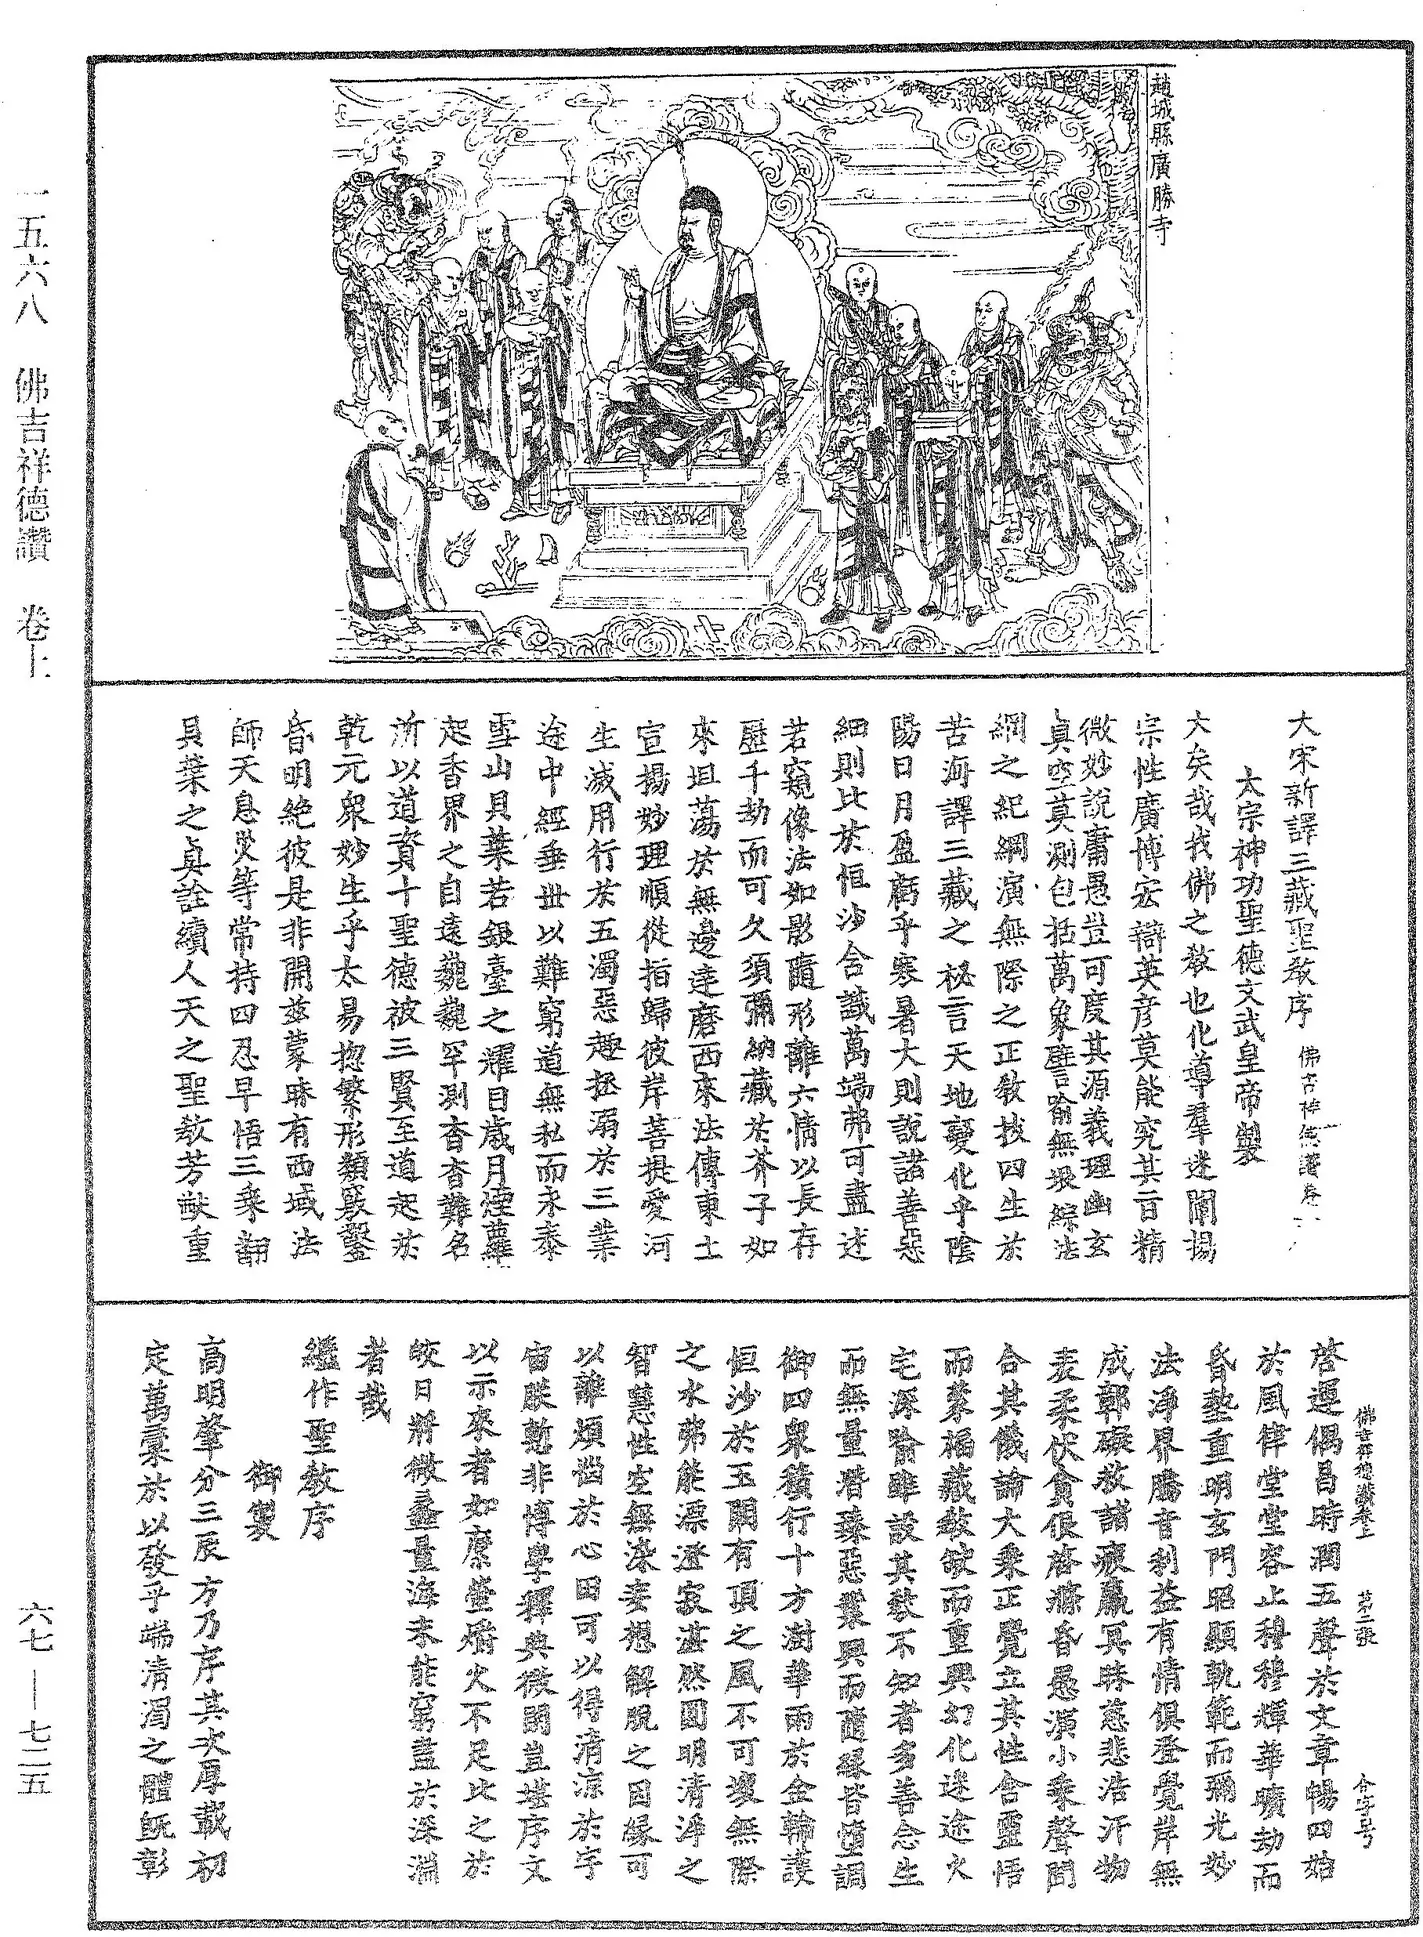 趙城縣廣勝寺
一五六八　佛吉祥德讚　卷上
大宋新譯三藏聖教序　佛吉祥德讚卷上
太宗神功聖德文武皇帝製
大矣哉我佛之教也化導羣迷闡揚
宗性廣博宏辯英彥莫能究其旨精
微妙說庸愚豈可度其源義理幽玄
真空莫測包括萬象譬喻無垠綜法
網之紀綱演無際之正教拔四生於
苦海譯三藏之祕言天地變化乎陰
陽日月盈虧乎寒暑大則說諸善惡
細則比於恒沙含識萬端弗可盡述
若窺像法如影隨形離六情以長存
歷千劫而可久須彌納藏於芥子如
來坦蕩於無邊達磨西來法傳東土
宣揚妙理順從指歸彼岸菩提愛河
生滅用行於五濁惡趣拯溺於三業
途中經垂世以難窮道無私而永泰
雪山貝葉若銀臺之耀目歲月煙蘿
起香界之自遠巍巍罕測杳杳難名
所以道資十聖德被三賢至道起於
乾元衆妙生乎太易揔繁形類竅鑿
昏明絕彼是非開茲蒙昧有西域法
師天息災等常持四忍早悟三乘翻
貝葉之真詮續人天之聖教芳猷重
佛吉祥德讚卷上　第二張　合字号
啓運偶昌時潤五聲於文章暢四始
於風律堂堂容止穆穆輝華曠劫而
昏墊重明玄門昭顯軌範而彌光妙
法淨界騰音利益有情俱登覺岸無
成鄣礙救諸疲羸冥昧慈悲浩汗物
表柔伏貪佷啓滌昏愚演小乘聲聞
合其儀論大乘正覺立其性含靈悟
而蒙福藏教缺而重興幻化迷途火
宅深喻雖設其教不知者多善念生
而無量潛臻惡業興而隨緣皆墮調
御四衆積行十方澍華雨於金輪護
恒沙於玉闕有頂之風不可壞無際
之水弗能漂澄寂湛然圓明清淨之
智慧性空無染妄想解脫之因緣可
以離煩惱於心田可以得清涼於宇
宙朕慙非博學釋典微閑豈堪序文
以示來者如縻螢爝火不足比之於
皎日將微蠡量海未能窮盡於深淵
者哉
繼作聖教序
御製
高明肇分三辰方乃序其次厚載初
定萬彙於以發乎端清濁之體旣彰
六七—七二五